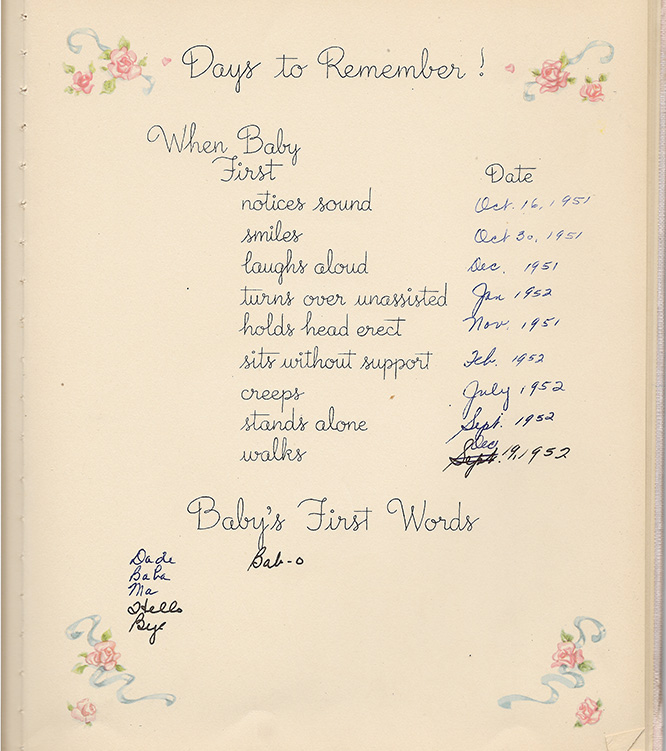 Days to Remember!
When Baby
First Date
notices sound Oct. 16, 1951
smiles Oct 30, 1951
laughs aloud Dec. 1951
turns over unassisted Jan 1952
holds head erect Nov. 1951
sits without support Feb. 1952
creeps July 1952
stands alone Sept. 1952
walks Sept. Dec 19, 1952
Baby's First Words
Dade Bab-o
Baba
Ma
Hello
Bye